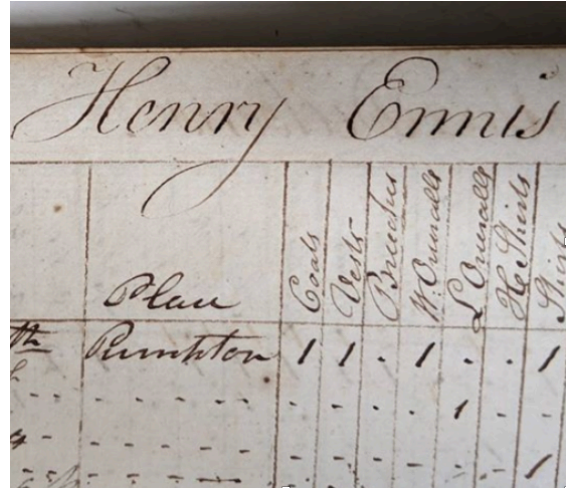 Henry Ennis
Place Coats Vests Breeches W. Overalls L Overalls H Shirts Shirts
th 1 1 . 1 . . 1